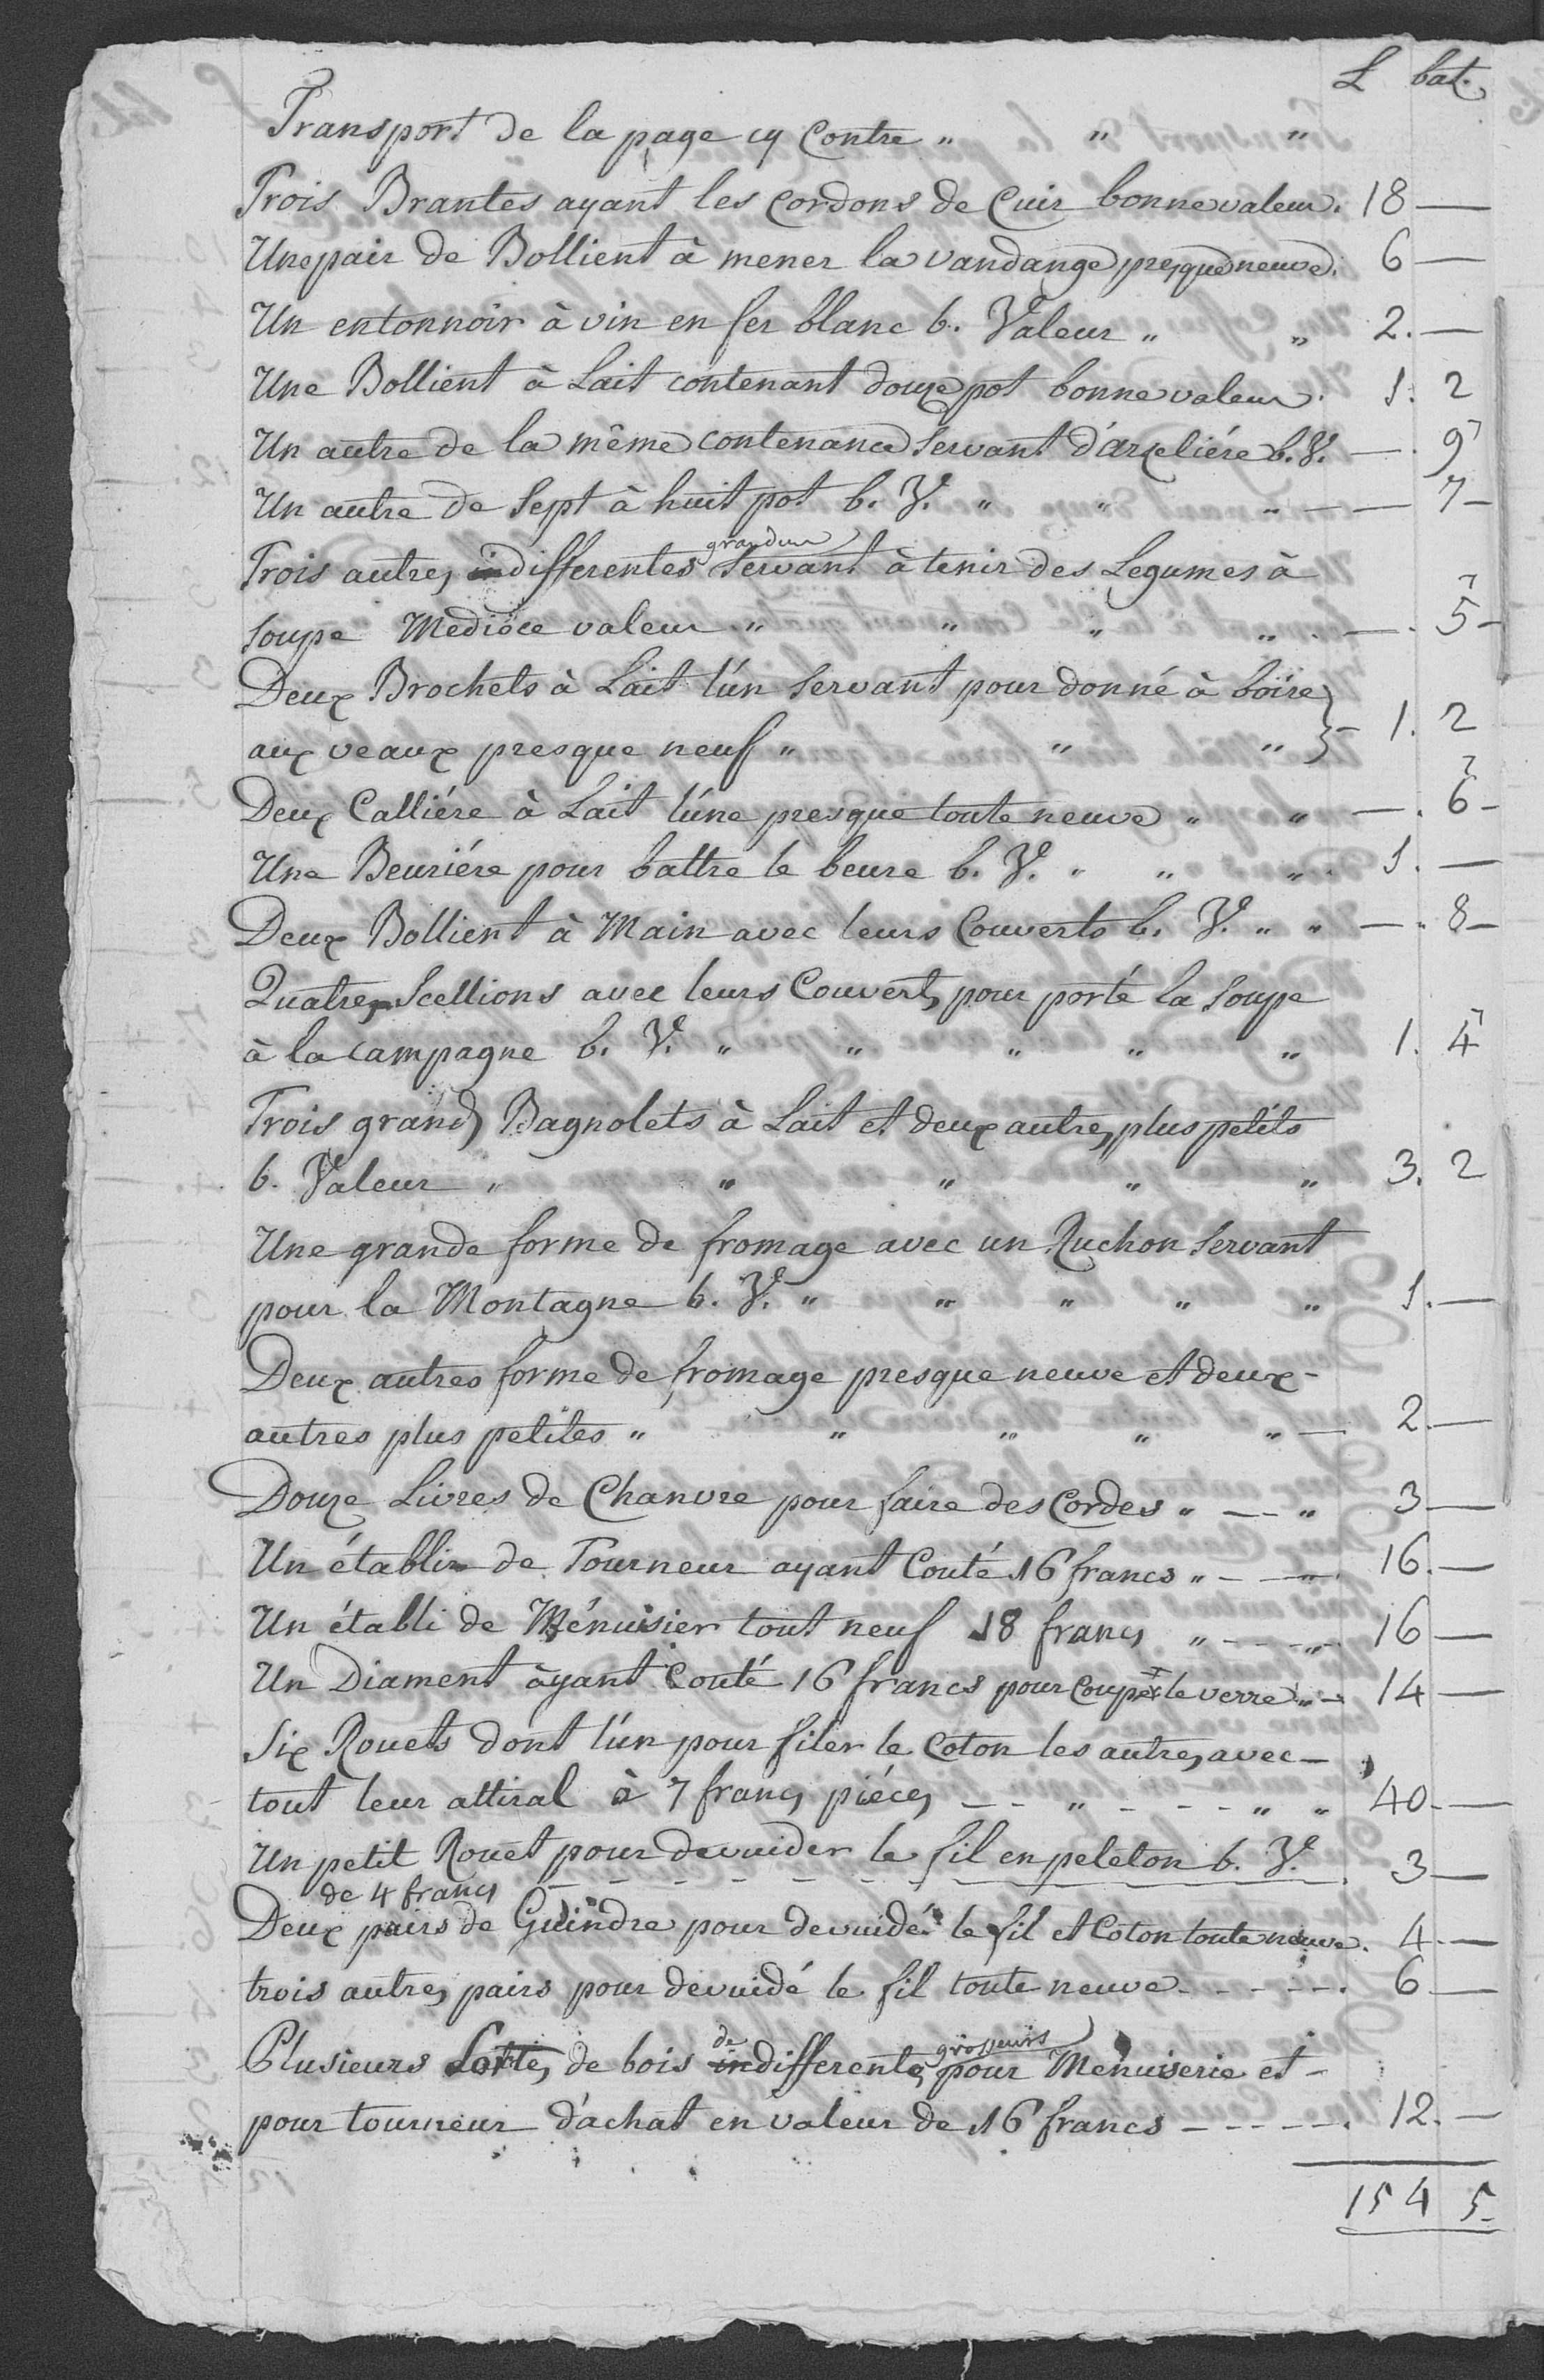 L bat.
Transport de la page cy Contre " " "
Trois Brantes ayant les Cordons de Cuir bonne valeur. 18 —
Une pair de Bollient à mener la vandange presque neuve. 6 —
Un entonnoir à vin en fer blanc b. Valeur " " 2. —
Une Bollient à Lait contenant douze pot bonne valeur. 1. 2
Un autre de la même contenance servant d'arzeliére b. V. — . 9
Un autre de Sept à huit pot b. V. " " " — — 7 —
Trois autres indifferentes grandeur Servant à tenir des Legumes à
soupe Medioce valeur " " " " . — . 5 —
Deux Brochets à Lait l'ún Servant pour donné à boire
aux veaux presque neuf " " " } — 1. 2
Deux Calliére à Lait l'úne presque toute neuve " " — . 6 —
Une Beuriére pour battre le beure b. V. " " " 1. —
Deux Bollient à Main avec leurs Couverts b. V. " " — . 8 —
Quatre Scellions avec leurs Couverts pour porté la Soupe
à la campagne b. V. " " " " " 1. 4
Trois grands Bagnolets à Lait et deux autres plus petits
b. Valeur " " " " " 3. 2
Une grande forme de fromage avec un Ruchon Servant
pour la Montagne b. V. " " " " " 1. —
Deux autres forme de fromage presque neuve et deux -
autres plus petites " " " " " — 2. —
Douze Livres de Chanvre pour faire des Cordes " — — " 3 —
Un établir de Tourneur ayant Couté 16 francs " — — " 16. —
Un établi de Ménuisier tout neuf 18 francs " - - - " 16 —
Un Diament ayant Couté 16 francs pour couper le verre " - 14 —
Six Rouets dont l'ún pour filer le Coton les autres avec —
tout leur attiral à 7 francs piéces - - " - - - " " 40. —
Un petit Rouet pour devuider le fil en peleton b. V. 3 —
de 4 francs
Deux pairs de Guindre pour devuidér le fil et Coton toute neuve. 4. —
trois autres pairs pour devuidé le fil toute neuve - - - - - . 6 —
Plusieurs Sortes de bois de indifferentes grosseurs pour Menuiserie et -
pour tourneur d'achat en valeur de 16 francs - - - - - . 12. —
154 5 -